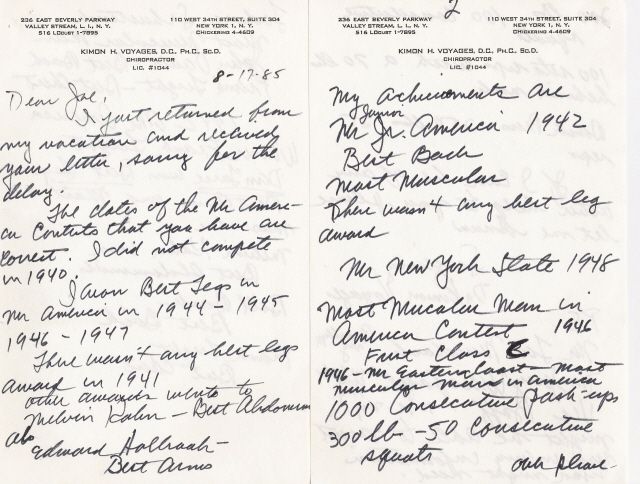 236 EAST BEVERLY PARKWAY
VALLEY STREAM, L. I., N. Y.
516 LOCUST 1-7895
110 WEST 34TH STREET, SUITE 304
NEW YORK 1, N. Y.
CHICKERING 4-4609
KIMON H. VOYAGES, D.C., PH.C., SC.D.
CHIROPRACTOR
LIC. #1044
8-17-85
Dear Joe,
I just returned from
my vacation and received
your letter, sorry for the
delay.
The dates of the Mr Ameri-
ca Contests that you have are
correct. I did not compete
in 1940.
I won Best Legs in
Mr America in 1944 - 1945
1946 - 1947
There wasn't any best legs
award in 1941
other awards went to
Melvin Kahn - Best Abdomen
also
Edward Holbrook -
Best Arms
2
236 EAST BEVERLY PARKWAY
VALLEY STREAM, L. I., N. Y.
516 LOCUST 1-7895
110 WEST 34TH STREET, SUITE 304
NEW YORK 1, N. Y.
CHICKERING 4-4609
KIMON H. VOYAGES, D.C., PH.C., SC.D.
CHIROPRACTOR
LIC. #1044
My achievements are
Junior
Mr Jr. America 1942
Best Back
Most Muscular
There wasn't any best leg
award
Mr New York State 1948
Most Muscular Man in
America Contest 1946
First Class
1946 - Mr Eastern Coast - Most
muscular man in america
1000 Consecutive push-ups
300 lb - 50 Consecutive
squats